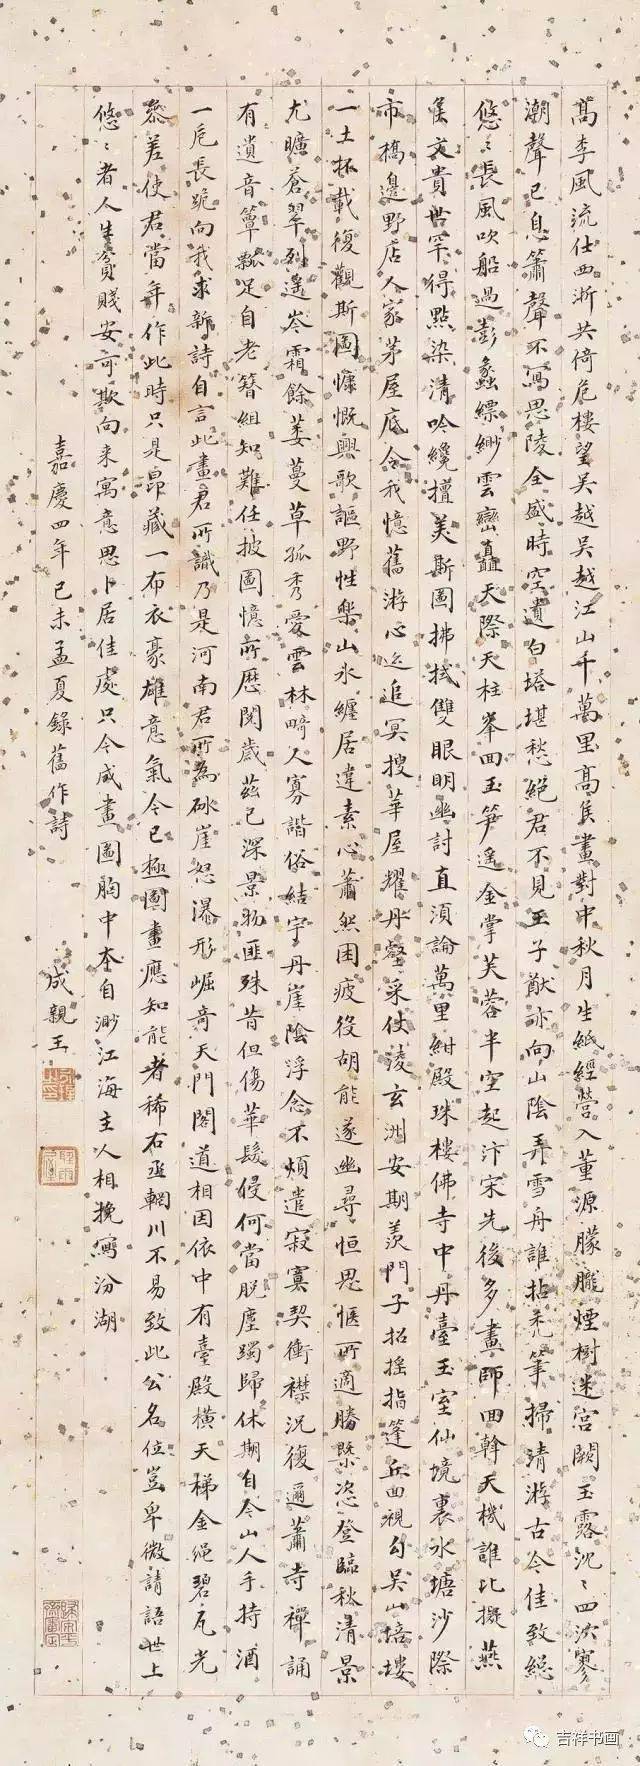 髙李風流仕西浙共倚危樓望吳越吳越江山千萬里髙侯畫對中秋月生紙經營入董源朦朧煙樹迷宮闕玉露沈〻四泬寥
潮聲已息簫聲不寫思陵全盛時空遺白塔堪愁絕君不見王子猷亦向山陰弄雪舟誰拈禿筆掃清游古今佳致総
悠〻長風吹船過彭蠡縹緲雲巒矗天際天柱峯回玉笋遙金掌芙蓉半空起汴宋先後多畫師回斡天機誰比擬燕
侯文貴世罕得點染清吟纔擅美斯圖拂拭雙眼明幽討直須論萬里紺殿珠樓佛寺中丹臺玉室仙境裏水塘沙際
市橋邊野店人家茅屋底令我憶舊游心迹追冥搜華屋耀丹壑采仗淩玄洲安期羨門子招搖指蓬丘回視勾吳山培塿
一土抔載復觀斯圖慷慨興歌謳野性樂山水纏居違素心蕭然困疲役胡能遂幽尋恒思愜所適勝槩恣登臨秋清景
尤曠蒼翠列遙岑霜餘萎蔓草孤秀愛雲林畸人寡諧俗結宇丹崖陰浮念不煩遣寂寞契衝襟況復邇蕭寺禪誦
有遺音簞瓢足自老簪組知難任披圖憶所歷閱歲茲已深景物匪殊昔但傷華髮侵何當脫塵躅歸休期自今山人手持酒
一卮長跪向我求新詩自言此畫君所識乃是河南君所為砯崖怒瀑形崛奇天門閣道相因依中有臺殿橫天梯金繩碧瓦光
參差使君當年作此時只是昂藏一布衣豪雄意氣今已極圖畫應知能者稀右丞輞川不易致此公名位豈卑微請語世上
悠〻者人生貧賤安可欺向来寓意思卜居佳處只今成畫圖胸中本自渺江海主人相挽寫汾湖
嘉慶四年己未孟夏錄舊作詩 成親王
吉祥书画